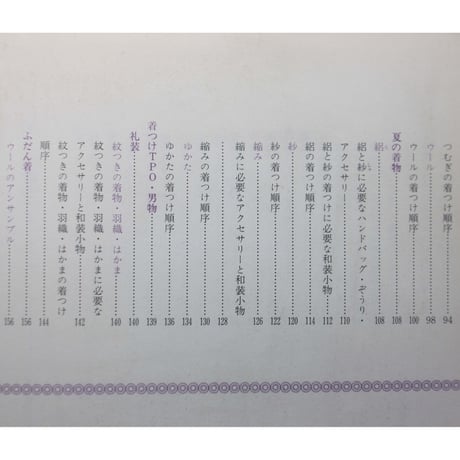 つむぎの着つけ順序……94
ウール……98
ウールの着つけ順序……100
夏の着物……108
絽……108
絽と紗に必要なハンドバッグ・ぞうり・
アクセサリー……110
絽と紗の着つけに必要な和装小物……112
絽の着つけ順序……114
紗……120
紗の着つけ順序……122
縮み……126
縮みに必要なアクセサリーと和装小物
……128
縮みの着つけ順序……130
ゆかた……134
ゆかたの着つけ順序……136
着つけTPO・男物……139
礼装……140
紋つきの着物・羽織・はかま……140
紋つきの着物・羽織・はかまに必要な
アクセサリーと和装小物……142
紋つきの着物・羽織・はかまの着つけ
順序……144
ふだん着……156
ウールのアンサンブル……156